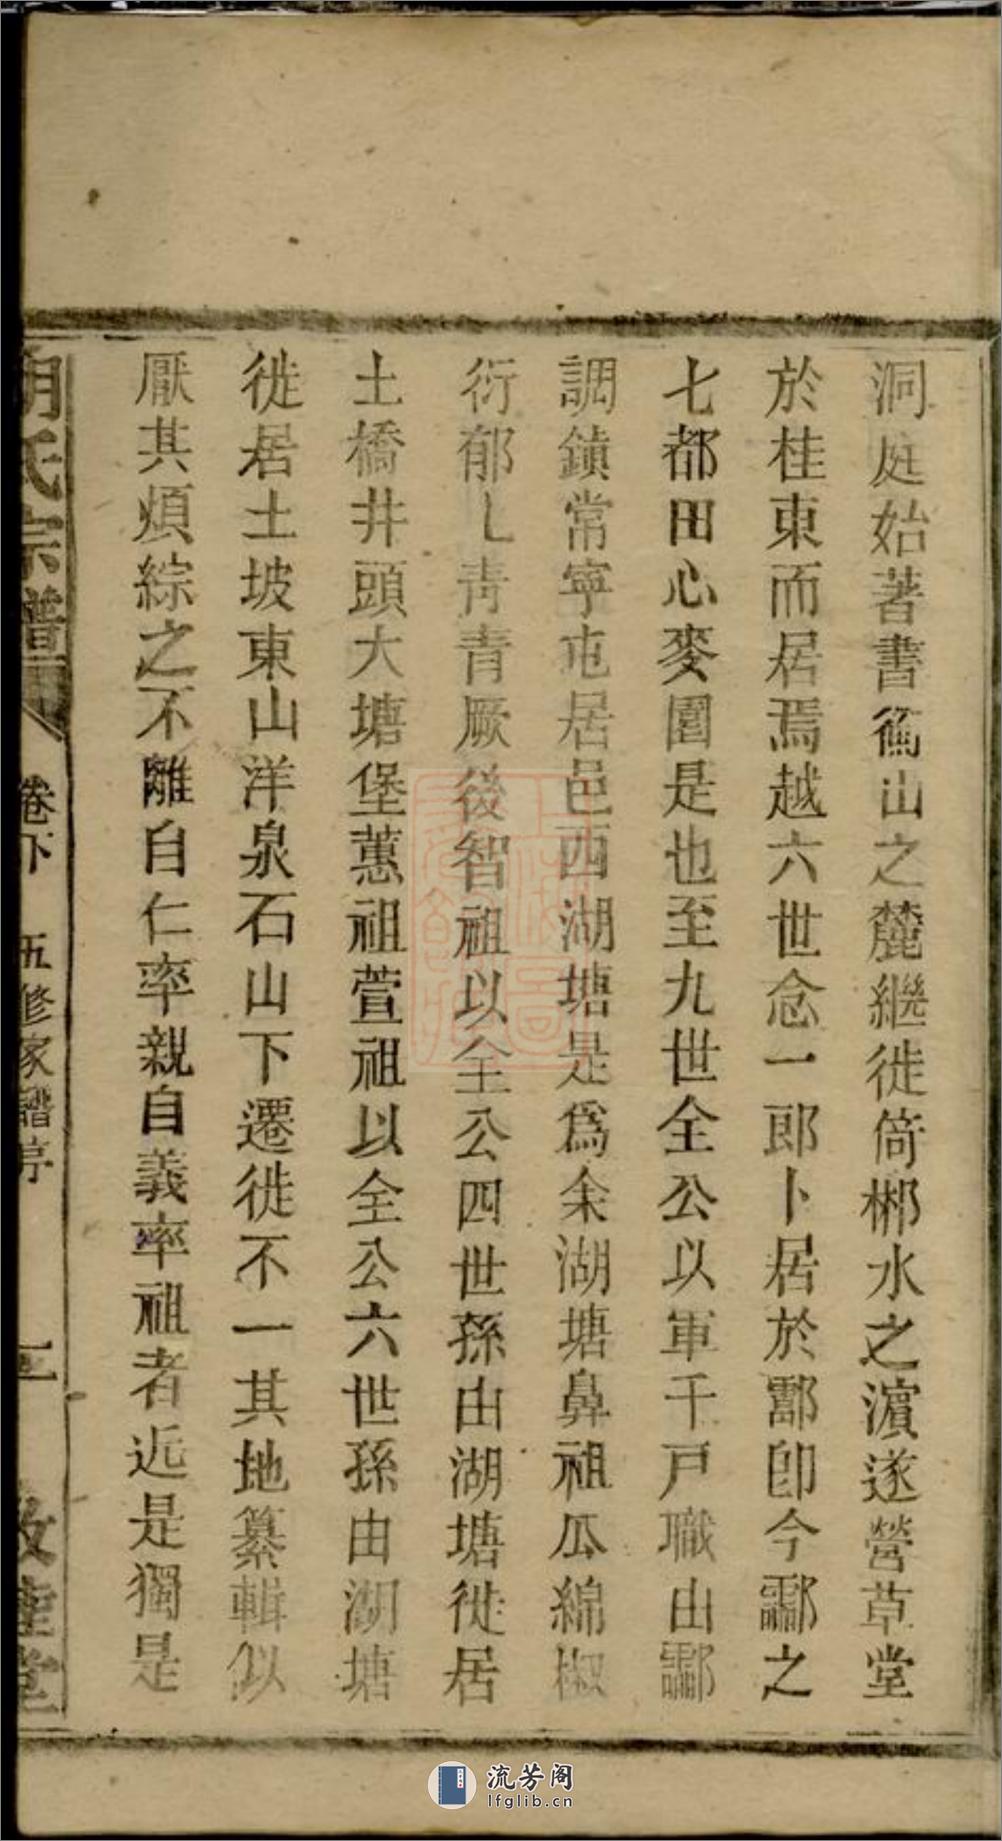 洞庭始著書衡山之麓繼徙倚郴水之濵遂營草堂
於桂東而居焉越六世念一郎卜居於酃卽今酃之
七都田心麥園是也至九世全公以軍千戸職由酃
調鎮常寧屯居邑西湖塘是爲余湖塘鼻祖瓜綿椒
衍郁乚青青厥後智祖以全公四世孫由湖塘徙居
土橋井頭大塘堡蕙祖萱祖以全公六世孫由湖塘
徙居土坡東山洋泉石山下遷徙不一其地纂輯似
厭其煩綜之不離自仁率親自義率祖者近是獨是
胡氏宗譜
卷下
五修家譜序
三
敦睦堂
流芳阁
lfglib.cn